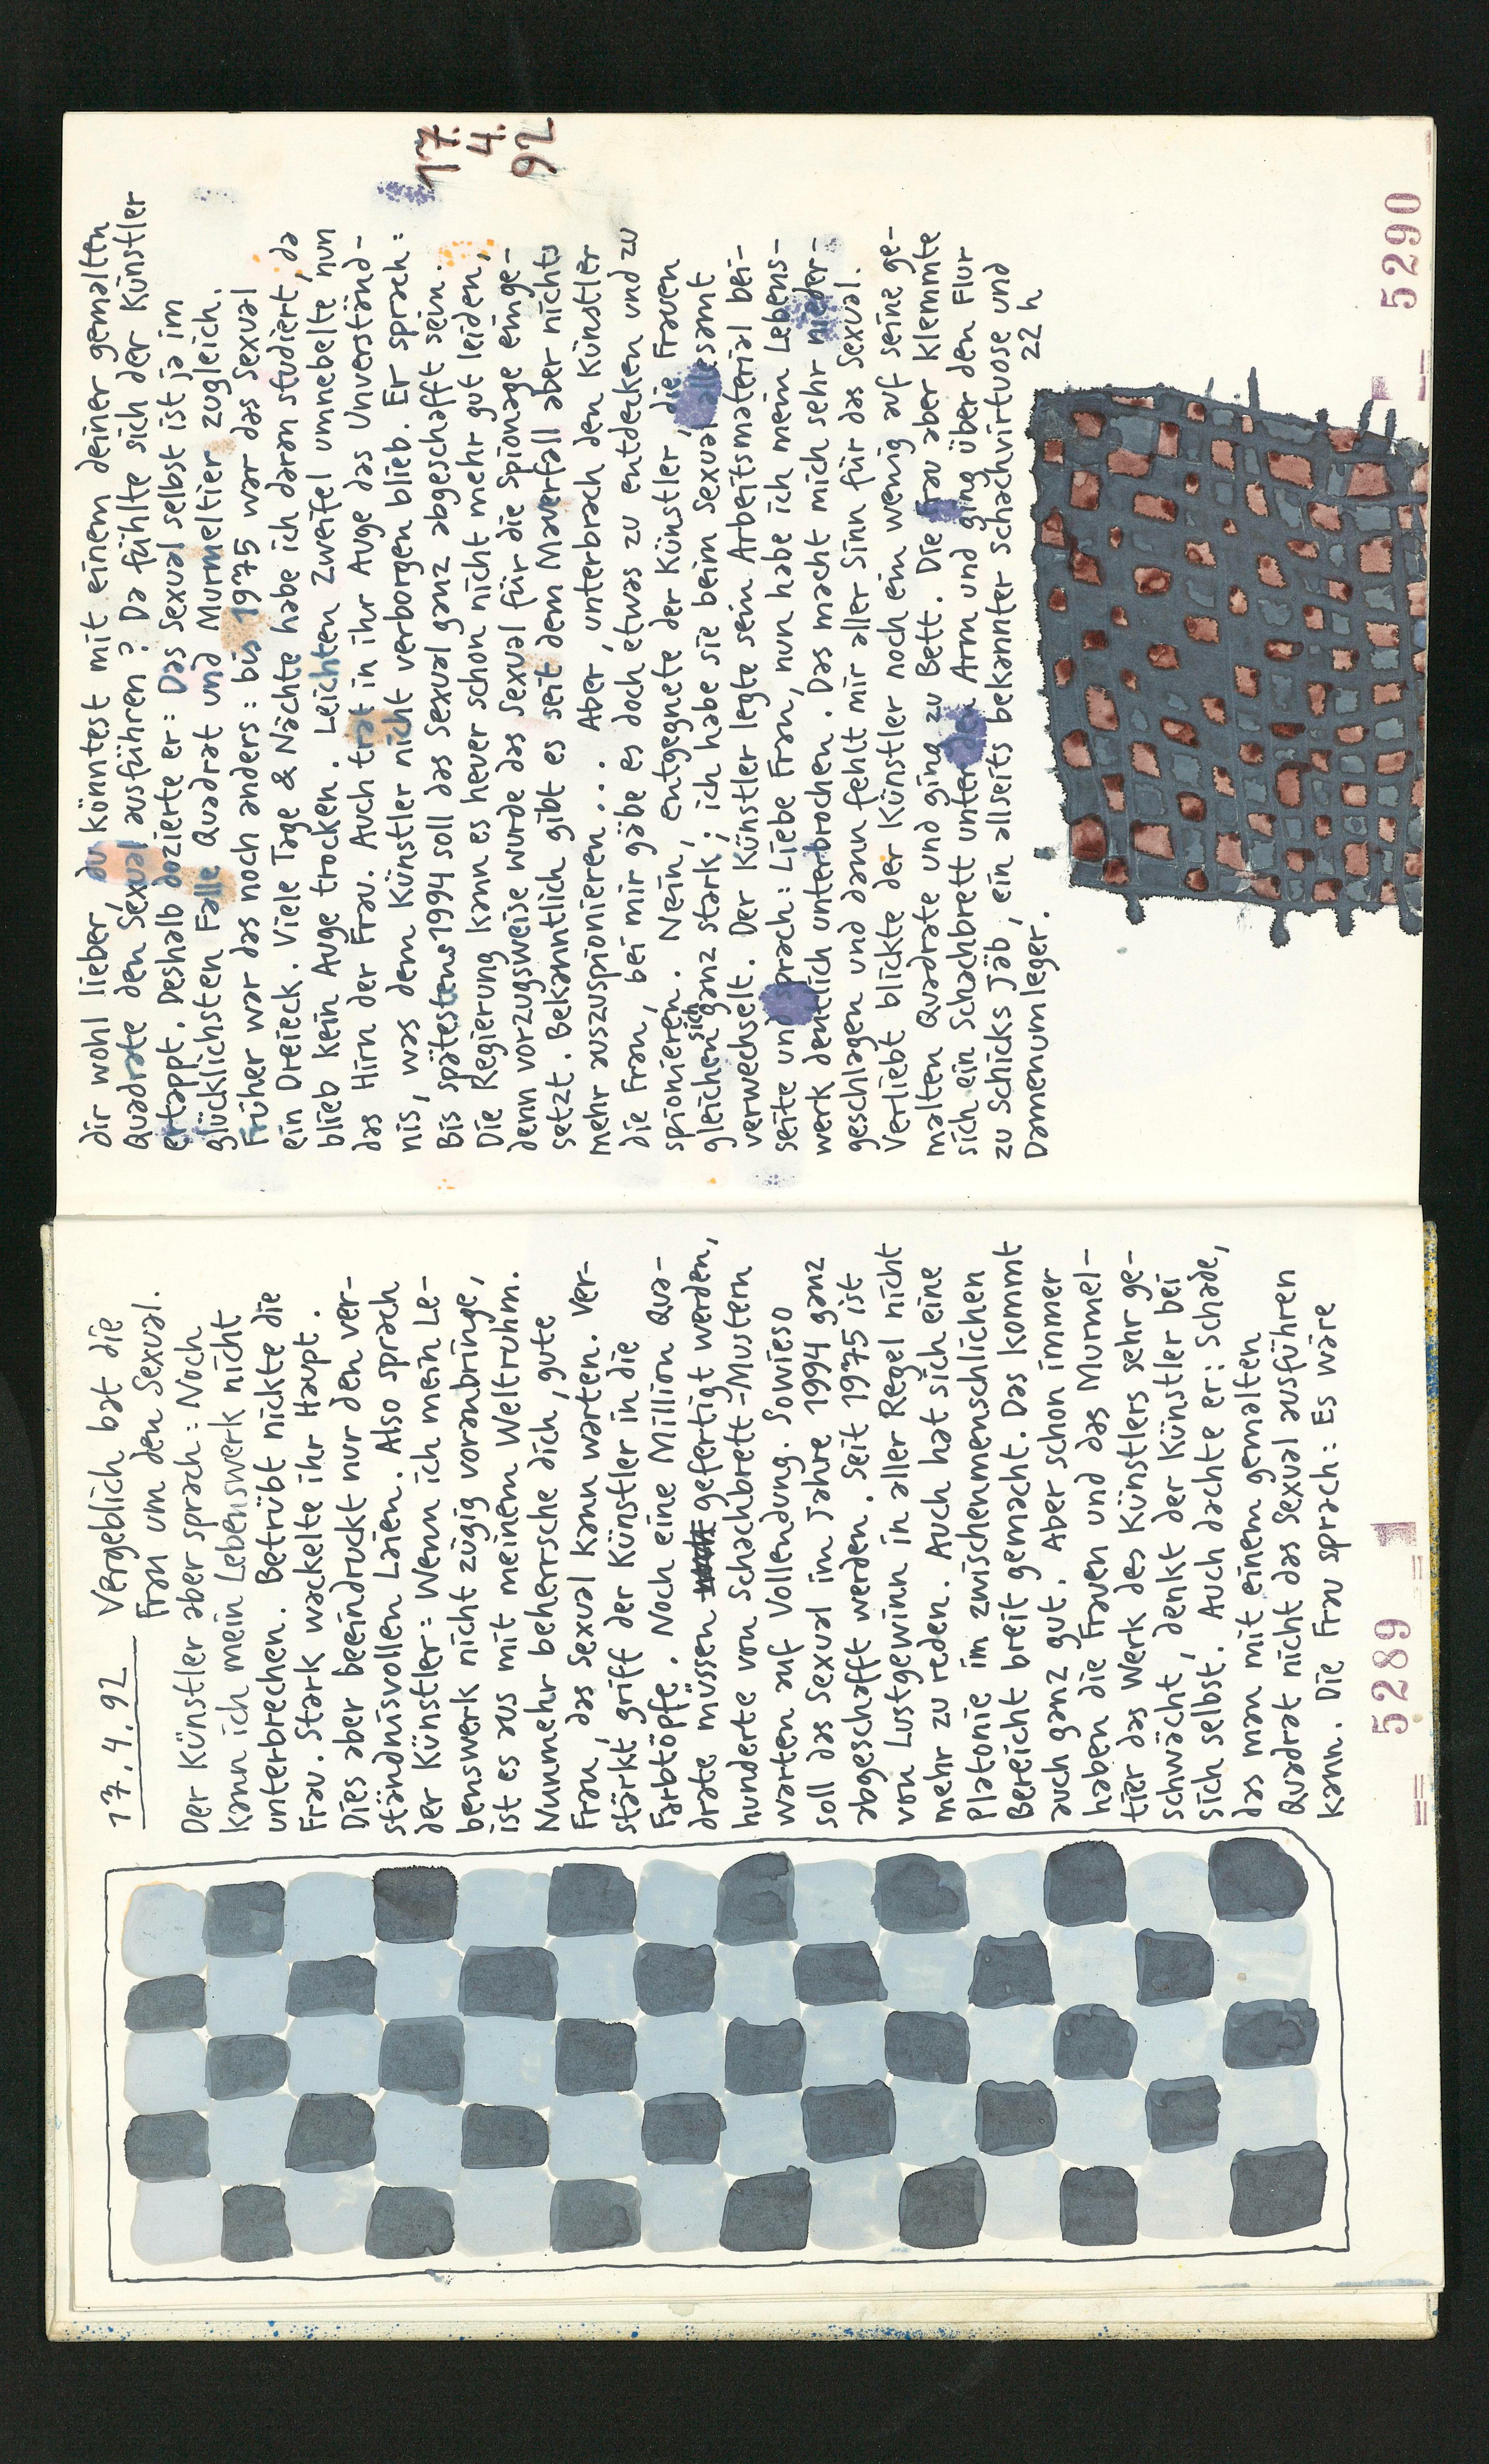 17.4.92 Vergeblich bat die
Frau um den Sexual.
Der Künstler aber sprach: Noch
kann ich mein Lebenswerk nicht
unterbrechen. Betrübt nickte die
Frau. Stark wackelte ihr Haupt.
Dies aber beeindruckt nur den ver-
ständnisvollen Laien. Also sprach
der Künstler: Wenn ich mein Le-
benswerk nicht zügig voranbringe,
ist es aus mit meinem Weltruhm.
Nunmehr beherrsche dich, gute
Frau, das Sexual kann warten. Ver-
stärkt griff der Künstler in die
Farbtöpfe. Noch eine Million Qua-
drate müssen gefertigt werden,
hunderte von Schachbrett-Mustern
warten auf Vollendung. Sowieso
soll das Sexual im Jahre 1994 ganz
abgeschafft werden. Seit 1975 ist
von Lustgewinn in aller Regel nicht
mehr zu reden. Auch hat sich eine
Platonie im zwischenmenschlichen
Bereicht breit gemacht. Das kommt
auch ganz gut. Aber schon immer
haben die Frauen und das Murmel-
tier das Werk des Künstlers sehr ge-
schwächt, denkt der Künstler bei
sich selbst. Auch dachte er: Schade,
das man mit einem gemalten
Quadrat nicht das Sexual ausführen
kann. Die Frau sprach: Es wäre
5289
dir wohl lieber, du könntest mit einem deiner gemalten
Quadrate den Sexual ausführen? Da fühlte sich der Künstler
ertappt. Deshalb dozierte er: Das Sexual selbst ist ja im
glücklichsten Falle Quadrat und Murmeltier zugleich.
Früher war das noch anders: bis 1975 war das Sexual
ein Dreieck. Viele Tage & Nächte habe ich daran studiert, da
blieb kein Auge trocken. Leichten Zweifel umnebelte nun
das Hirn der Frau. Auch trat in ihr Auge das Unverständ-
nis, was dem Künstler nicht verborgen blieb. Er sprach:
Bis spätestens 1994 soll das Sexual ganz abgeschafft sein.
Die Regierung kann es heuer schon nicht mehr gut leiden,
denn vorzugsweise wurde das Sexual für die Spionage einge-
setzt. Bekanntlich gibt es seit dem Mauerfall aber nichts
mehr auszuspionieren... Aber, unterbrach den Künstler
die Frau, bei mir gäbe es doch etwas zu entdecken und zu
spionieren. Nein, entgegnete der Künstler, die Frauen
gleichen sich ganz stark; ich habe sie beim Sexual allesamt
verwechselt. Der Künstler legte sein Arbeitsmaterial bei-
seite und sprach: Liebe Frau, nun habe ich mein Lebens-
werk deutlich unterbrochen. Das macht mich sehr nieder-
geschlagen und dann fehlt mir aller Sinn für das Sexual.
Verliebt blickte der Künstler noch ein wenig auf seine ge-
malten Quadrate und ging zu Bett. Die Frau aber klemmte
sich ein Schachbrett unter den Arm und ging über den Flur
zu Schicks Jäb, ein allseits bekannter Schachvirtuose und
Damenumleger. 22 h
17.
4.
92
5290